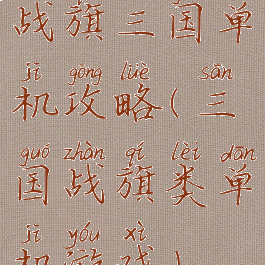 战旗三国单
jī gōng lüè sān
机攻略(三
guó zhàn qí lèi dān
国战旗类单
jī yóu xì
机游戏)